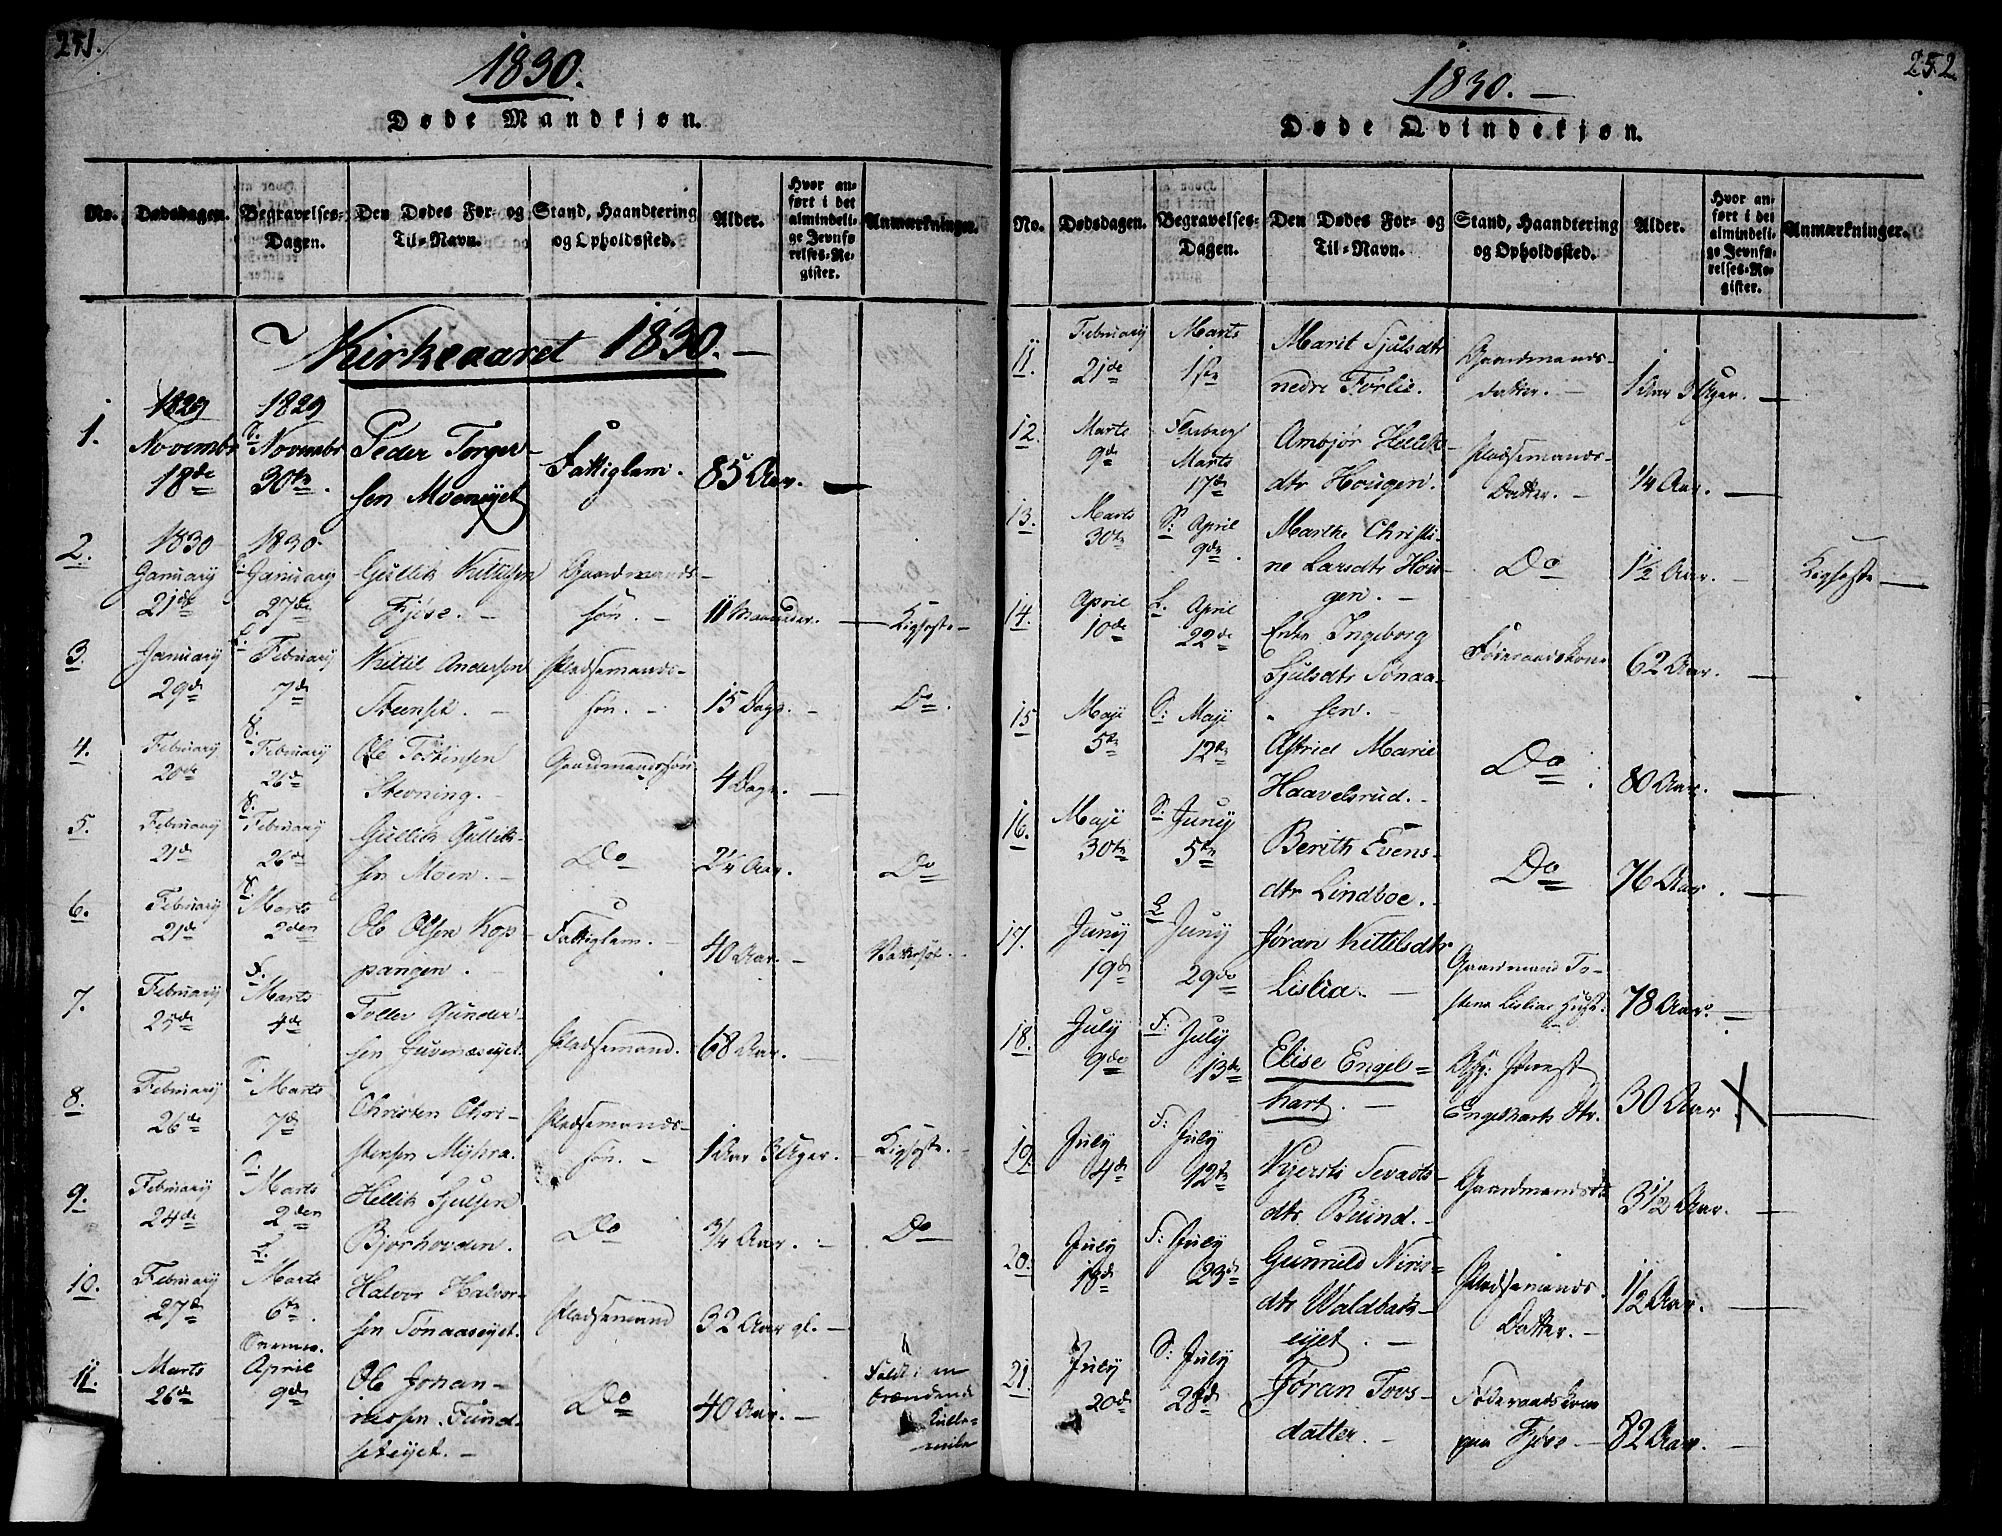 251.
1830.
Døde Mandkjøn.
No. Dødsdagen. Begravelses-Dagen. Den Dødes For- og Til-Navn. Stand, Haandtering og Opholdssted. Alder. Hvor anført i det almindelige Jevnførelses-Register. Anmærkninger.
Kirkeaaret 1830.
1. 1829 November 18de 1829 November 30te Peder Torgersen Moeneyet Fattiglem. 85 Aar.
2. 1830 January 21de 1830 January 27de Gullik Kittilsen Fjøse. Gaardmandssøn. 11 Maaneder. Kighoste
3. January 29de L: February 7de Kittil Andersen Steenset. Pladsemandssøn. 15 Dage. Do.
4. February 20de S. February 26de Ole Tostensen Stevning. Gaardmandssøn 4 Dage.
5. February 21de S. February 26de Gullik Gulliksen Moen. Do 2 1/4 Aar. Do
6. February 21de S. Marts 2den Ole Olsen Koppangen. Fattiglem. 40 Aar. Vattersot.
7. February 25de F. Marts 4de Toller Gundersen Juvenæseyet. Pladsemand. 68 Aar.
8. February 26de Marts 7de Christen Christensen Myhra. Pladsemandssøn. 1 Aar 3 Uger. Kighoste.
9. February 24de Marts 2den Hellik Hjulsen Bjorhovden. Do 3/4 Aar. Do
10. February 27de L. Marts 6te Halvor Halvorsen Tønaaseyet. Pladsemand 32 Aar gl.
11. Marts 26de April 9de Ole Johannessen Fundseteyet. Do 40 Aar. Faldt i en brændende Kullemile
252.
1830.
Døde Qvindekjøn.
No. Dødsdagen. Begravelses-Dagen. Den Dødes For- og Til-Navn. Stand, Haandtering og Opholdssted. Alder. Hvor anført i det almindelige Jevnførelses-Register. Anmærkninger.
11. February 21de Marts 1ste Marit Hjulsdtr nedre Forlie. Gaardmandsdatter. 1 Aar 3 Uger.
12. Marts 9de Flesberg Marts 17de Ambjør Helliksdtr Hougen. Pladsemands-Datter. 1/4 Aar.
13. Marts 30te S: April 9de Marthe Christine Larsdtr Hougen. Do 1 1/2 Aar. Kighoste
14. April 10de L. April 22de Enke Ingeborg Hjulsdtr Tønaasen. Føderaadskone 62 Aar.
15 Maji 5te S: Maji 12te Astrid Marie Haavelsrud. Do 80 Aar.
16. Maji 30te S: Juny 5te Berith Evensdtr Lindboe. Do 76 Aar.
17. Juny 19de L Juny 29de Jøran Kittilsdtr Lislia. Gaardmand Tostens Lislias Hust. 78 Aar.
18. July 9de F: July 13de Elise Engelhart. Præst Engelharts Dtr. 30 Aar X
19. July 4de F: July 12te Kjersti Sevatsdtr Buind. Gaardmandsdt 3 1/2 Aar.
20. July 18de F: July 23de Gunnild Nirisdtr Waldbækseyet. Pladsemands Datter. 1/2 Aar.
21. July 20de S: July 28de Jøran Tovsdatter. Føderaadskone paa Fjøse 82 Aar.